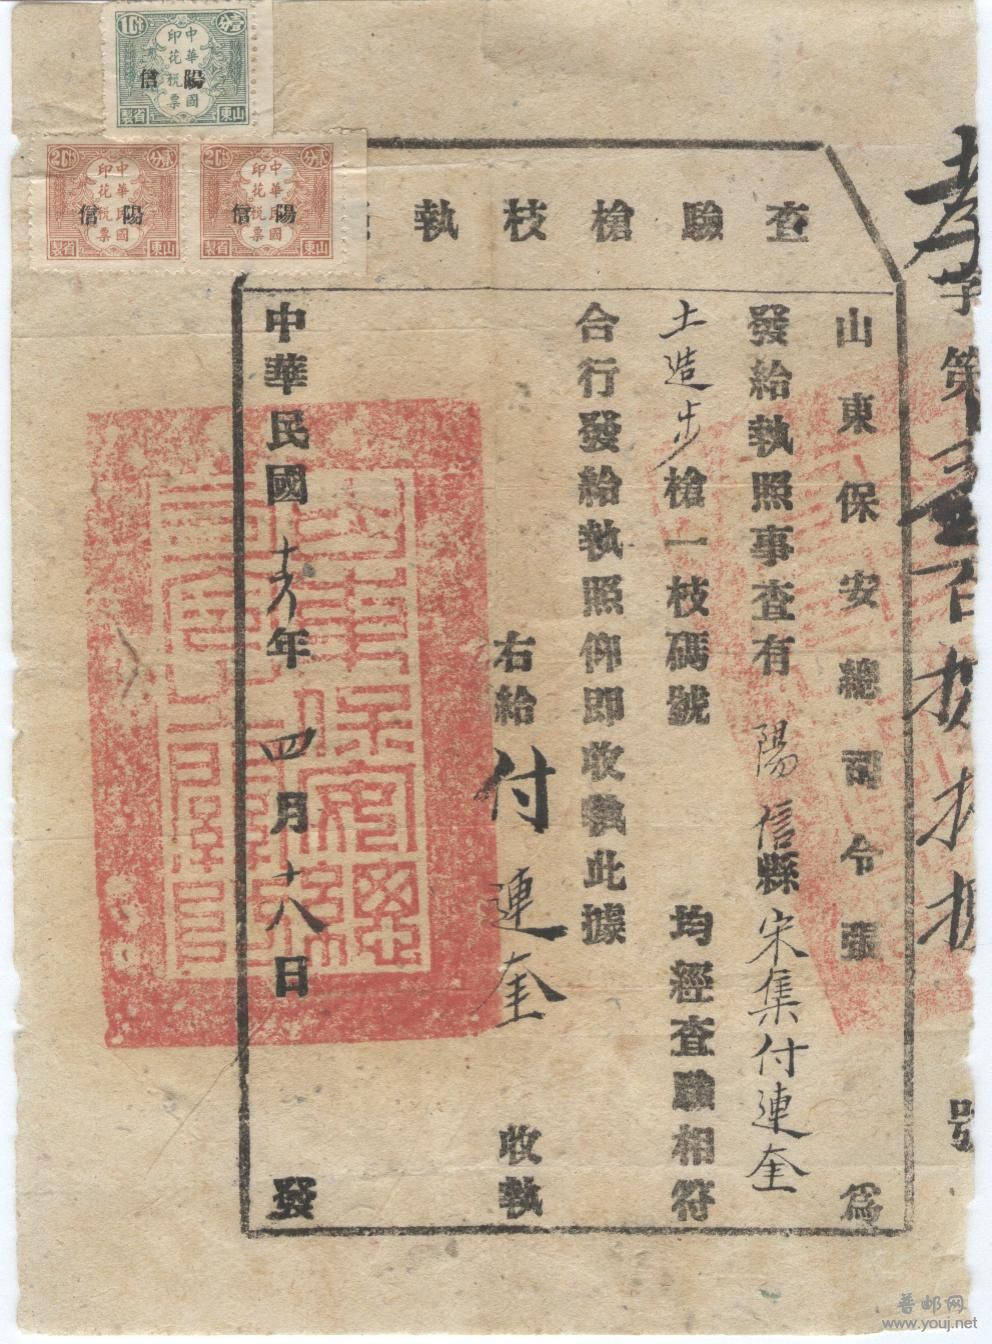 查驗槍枝執
山東保安總司令張 爲
發給執照事查有 陽信縣宋集付連奎
土造步槍一枝碼號 均經查驗相符
合行發給執照仰即收執此據
右給付連奎 收執
中華民國 年四月十八日 發
字第 百 號
1Ct 壹分
中華民國
印花稅票
信陽
山東省製
2Cts 貳分
中華民國
印花稅票
信陽
山東省製
2Cts 貳分
中華民國
印花稅票
信陽
山東省製
普邮网
www.youj.net